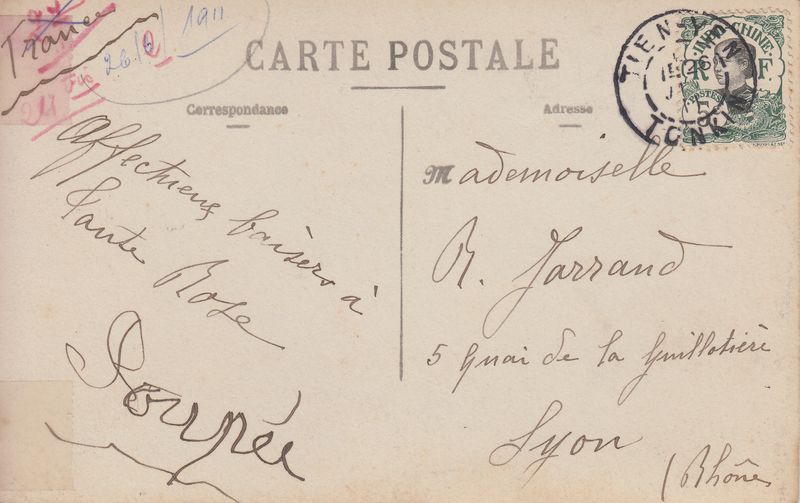 France
26/6/1911
CARTE POSTALE
Correspondance
Adresse
TIEN-YEN
TONKIN
INDO-CHINE
R F
POSTES
5
Affectueux baisers à
Tante Rose
Poupée
Mademoiselle
R. Jarrand
5 Quai de la Guillotière
Lyon
(Rhône